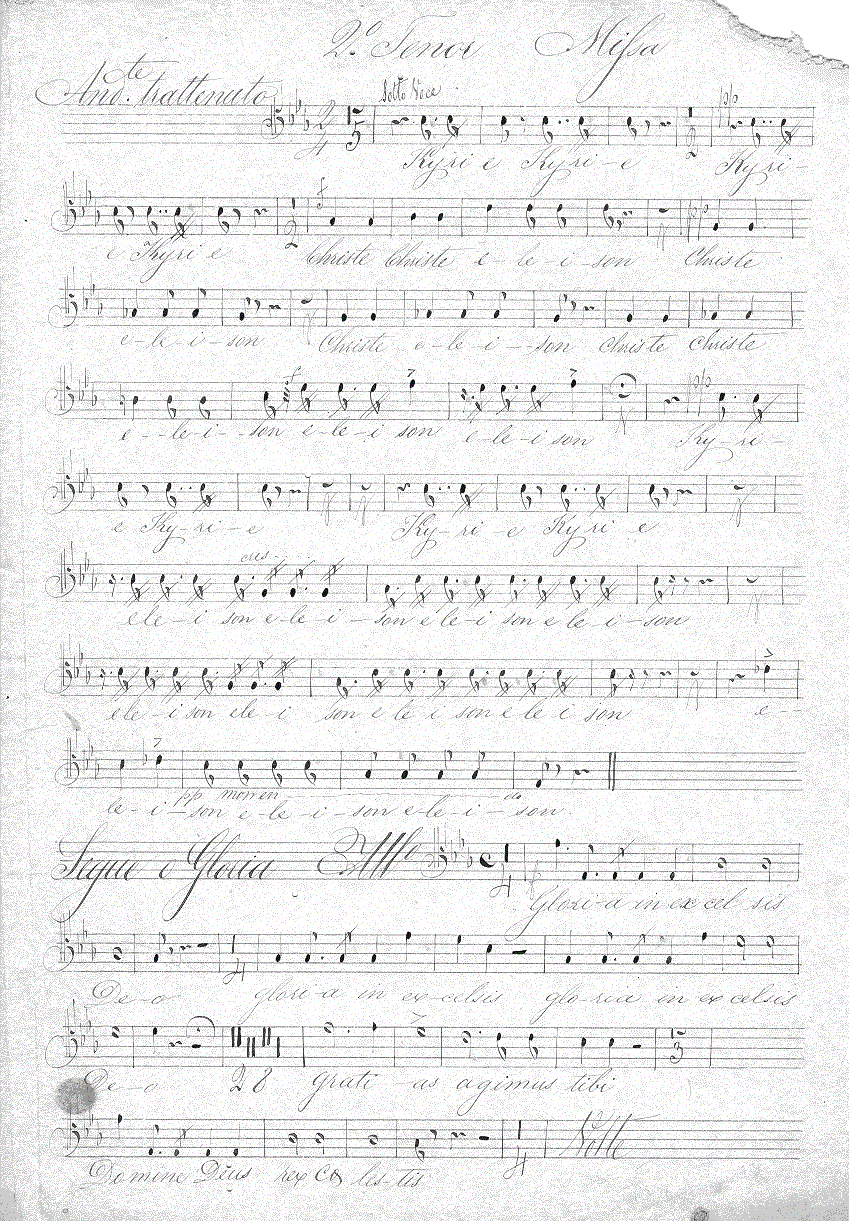 2º Tenor Missa
Andte. trattenuto
Sotto Voce
2/4 15 2 pp
Kyri e Kyri-e Kyri-
2 f pp
e Kyri e Christe Christe e-le-i-son Christe
e-le-i-son Christe e-le-i-son christe christe
f pp
e--le-i-son e-le-i son e-le-i son Ky-ri-
e Ky-ri-e Ky-ri-e Kyri e
cres
ele-i son e-le-i-son e le-i son e le-i-son
ele-i son ele-i son e le i son e le i son e-
le-i-son e-le-i-son e-le-i-son
pp morren do
Segue o Gloria Allo C 4 f
Glori-a in ex cel sis
4
De-o glori-a in ex-celsis glo-ria in ex celsis
28 13
De-o grati-as agimus tibi
4 Volte
Domine Deus rex Ce les-tis